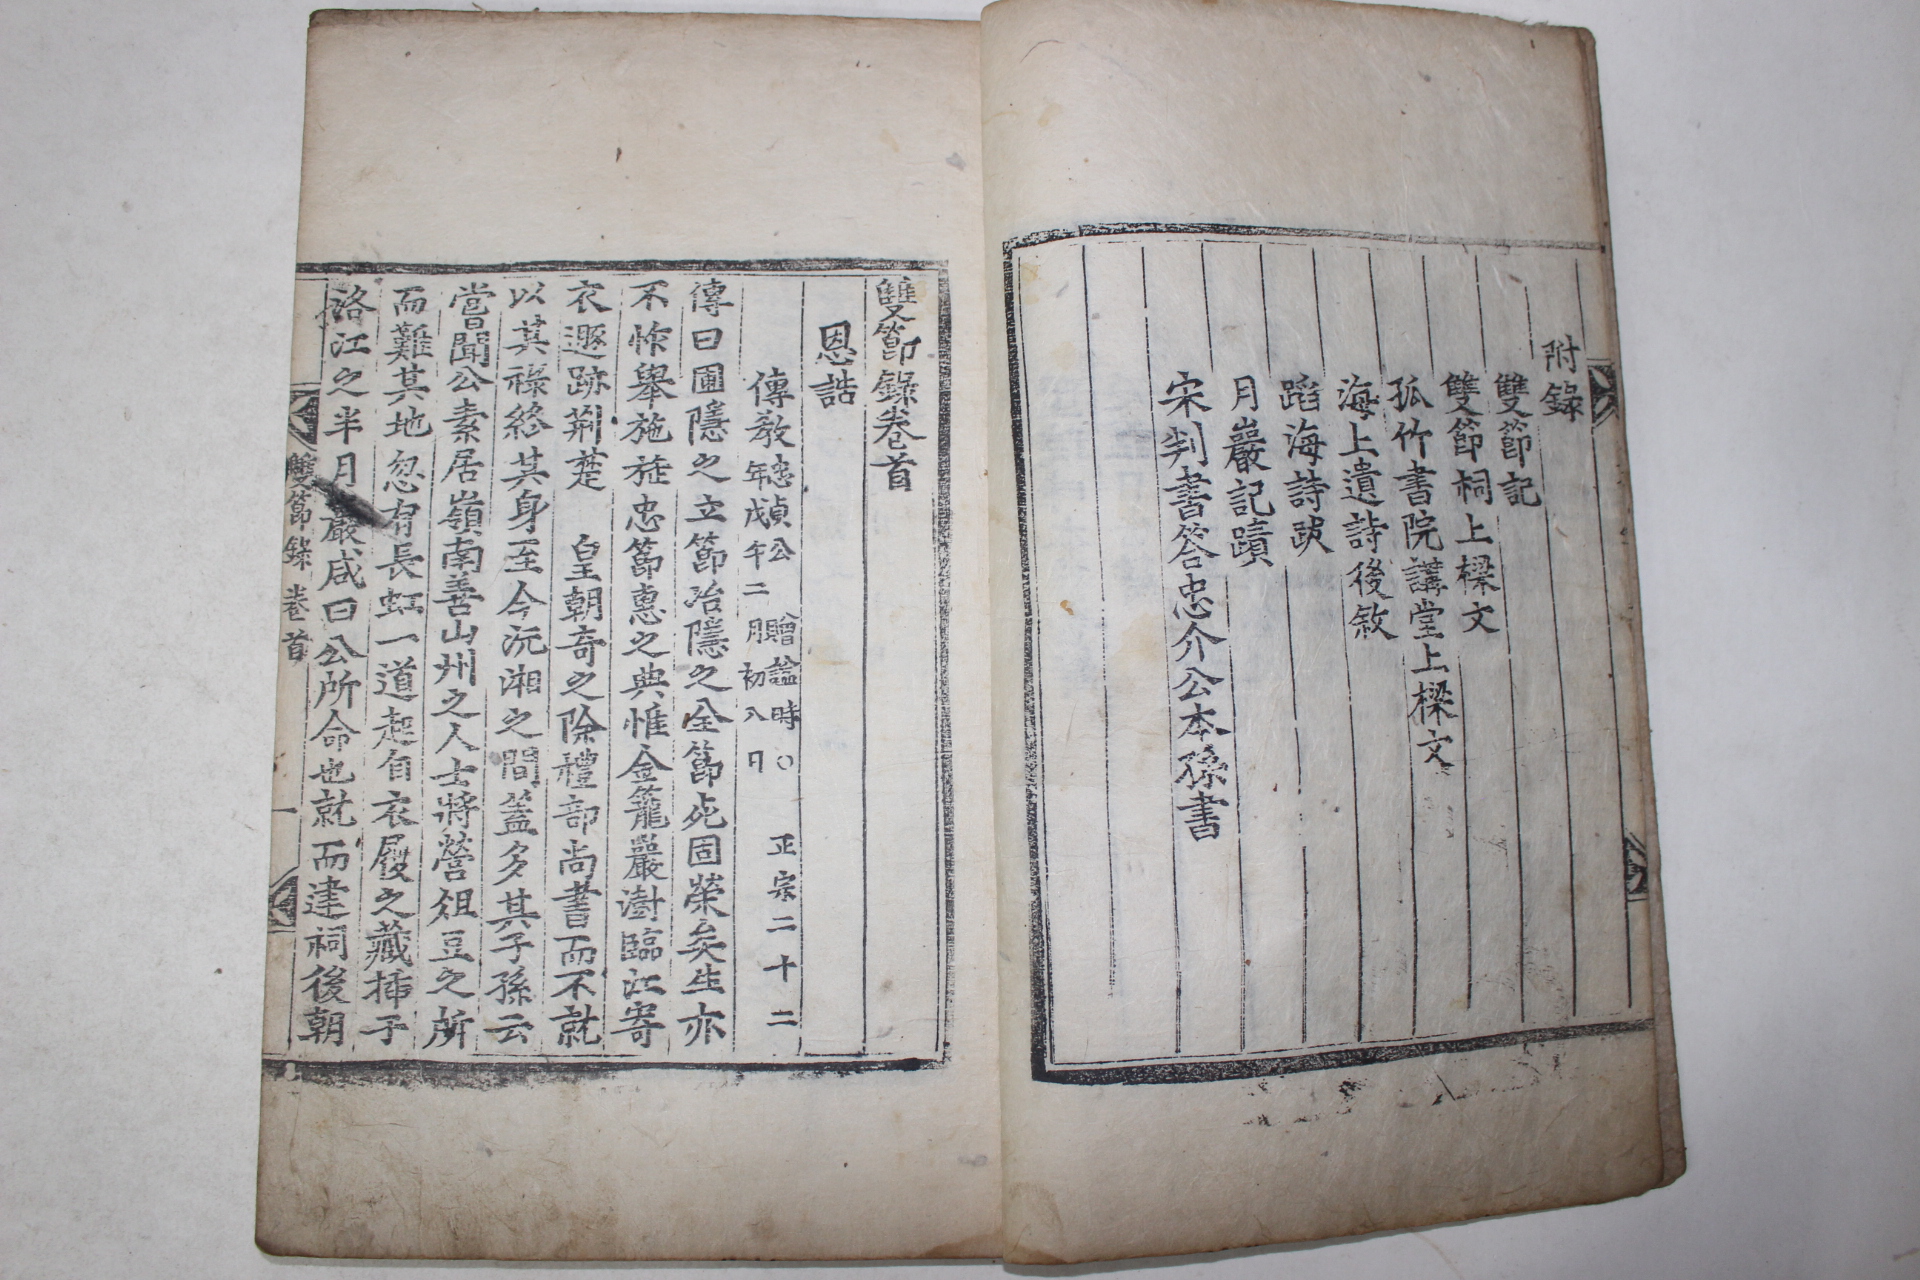 附錄
雙節記
雙節祠上樑文
孤竹書院講堂上樑文
海上遺詩後敘
蹈海詩跋
月巖記蹟
宋判書答忠介公本孫書
雙節錄卷首
恩誥
傳教
忠貞公 贈諡時○ 正宗二十二
年戊午二月初八日
傳曰圃隱之立節冶隱之全節死固榮矣生亦
不怍舉施旌忠節惠之典惟金籠巖澍臨江寄
衣遯跡荊楚 皇朝奇之除禮部尚書而不就
以其祿終其身至今沅湘之間蓋多其子孫云
嘗聞公素居嶺南善山州之人士將營俎豆之所
而難其地忽有長虹一道起自衣履之藏揷于
洛江之半月巖咸曰公所命也就而建祠後朝
雙節錄 卷首 一